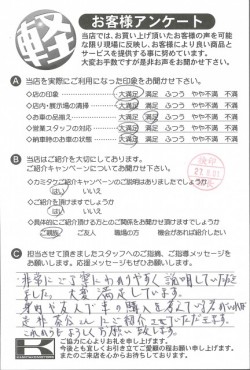 軽
お客様アンケート
当店では、お買い上げ頂いたお客様の声を可能
な限り現場に反映し、お客様により良い商品と
サービスを提供する事に努めています。
大変お手数ですが是非お声をお聞かせ下さい。
A 当店を実際にご利用になった印象をお聞かせ下さい。
◇店の印象 大満足 満足 ふつう やや不満 不満
◇店内・展示場の清掃 大満足 満足 ふつう やや不満 不満
◇お車の品揃え 大満足 満足 ふつう やや不満 不満
◇営業スタッフの対応 大満足 満足 ふつう やや不満 不満
◇納車時のお車の状態 大満足 満足 ふつう やや不満 不満
B 当店はご紹介を大切にしております。
ご紹介キャンペーンについてお聞かせ下さい。
◇カミタケご紹介キャンペーンのご説明はありましたでしょうか
はい いいえ
◇ご紹介頂けますでしょうか
はい いいえ
◇具体的にご紹介頂ける方とのご関係をお聞かせ頂けますでしょうか
ご親族 ご友人 職場の方 機会があれば紹介したい
C 担当させて頂きましたスタッフへのご指摘、ご指導メッセージを
お願いします。応援メッセージもぜひお願いします。
非常にご丁寧にわかりやすく説明していただき
ました。大変満足しています。
身内や友人で車の購入を考えている
ご紹介させていただきます。
これからもよろしくお願い致します。
K
ご協力に心よりお礼を申し上げます。
今後とも宜しくお引き立てご愛顧の程お願い申し上げます。
またのご来店を心よりお待ちしております。